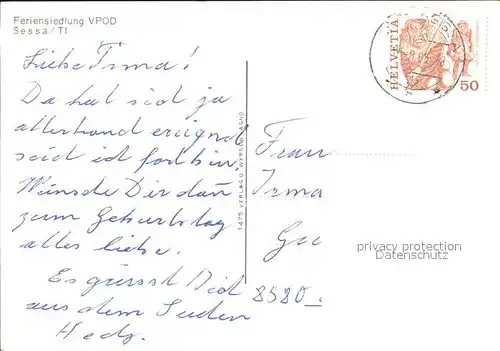 Feriensiedlung VPOD
Sessa/TI
Liebe Irma!
Da hat sich ja
allerhand ereignet
seid ich fort bin.
Wünsche Dir dan
zum Geburtstag
alles liebe.
Es grüsst Dich
aus dem Süden
Hedy.
1475 VERLAG O. WYRSCH, AGNO
HELVETIA
50
Frau
Irma
8580
privacy protection
Datenschutz